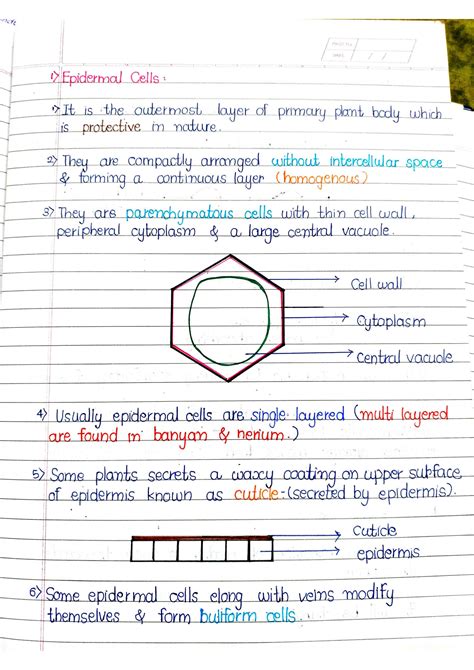 1) Epidermal Cells:
1) It is the outermost layer of primary plant body which
is protective in nature.
2) They are compactly arranged without intercellular space
& forming a continuous layer (homogenous)
3) They are parenchymatous cells with thin cell wall,
peripheral cytoplasm & a large central vacuole.
Cell wall
Cytoplasm
Central vacuole
4) Usually epidermal cells are single layered (multi layered
are found in banyan & nerium.)
5) Some plants secrets a waxy coating on upper surface
of epidermis known as cuticle-(secreted by epidermis).
Cuticle
epidermis
6) Some epidermal cells elong with veins modify
themselves & form buliform cells.